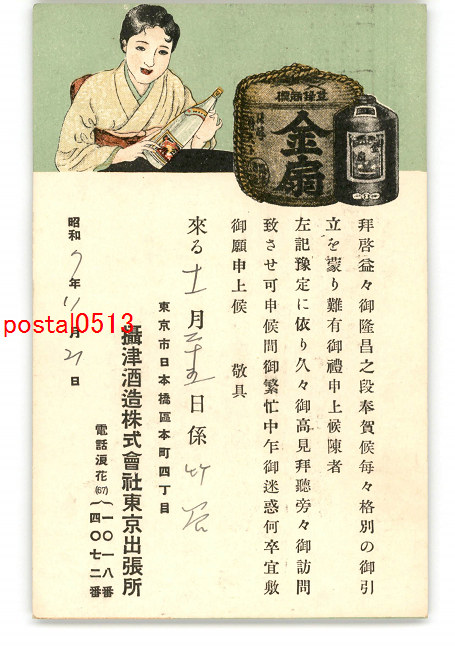 登録商標
金扇
拝啓益々御隆昌之段奉賀候毎々格別の御引
立を蒙り難有御禮申上候陳者
左記豫定に依り久々御高見拜聽旁々御訪問
致させ可申候間御繁忙中乍御迷惑何卒宜敷
御願申上候 敬具
來る 十一 月 二十五 日 係 竹谷
東京市日本橋區本町四丁目
攝津酒造株式會社東京出張所
電話浪花(67){一〇一八番
四〇七二番
昭和 7 年 11 月 21 日
postal0513